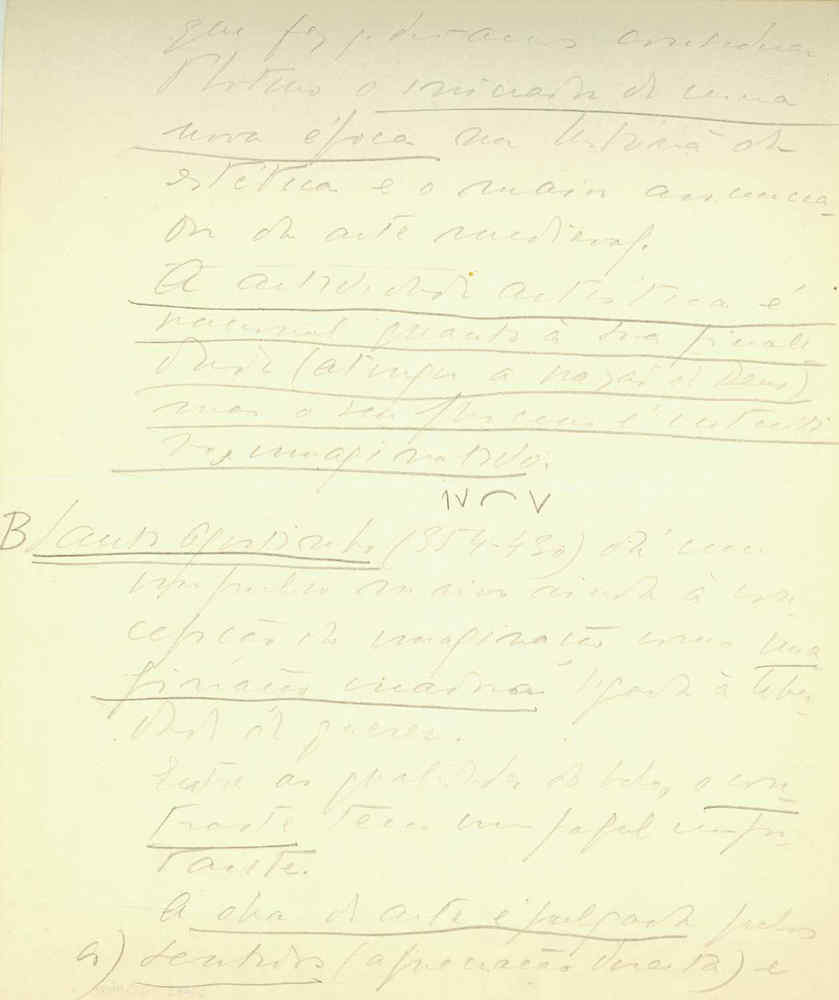 que fez podermos considerar
Plotino o iniciador de uma
nova época na história da
estética e o maior anuncia-
dor da arte medieval.
A actividade artística é
racional quanto à sua finali
dade (atingir a razão de Deus)
mas o seu processo é intuiti
vo, imaginativo.
IV V
B Santo Agostinho (354-430) dá um
impulso maior ainda à con-
cepção da imaginação como uma
criadora ligada à liber-
dade de querer.
Entre as qualidades do belo, o con-
traste tem um papel impor-
tante.
A obra de arte é julgada pelos
a) sentidos (apreciação directa) e